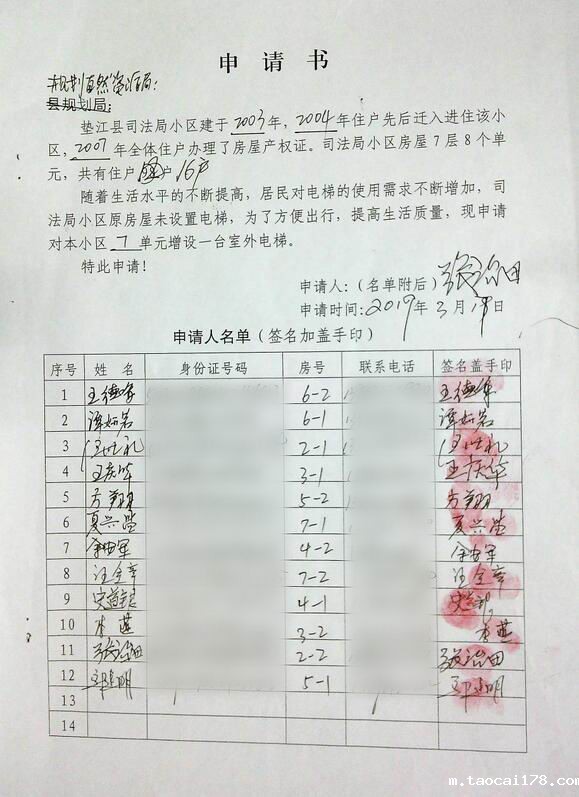 申请书
规划自然资源局：
县规划局：
垫江县司法局小区建于2003年，2004年住户先后迁入进住该小
区，2007年全体住户办理了房屋产权证。司法局小区房屋7层8个单
元，共有住户 户16户
随着生活水平的不断提高，居民对电梯的使用需求不断增加，司
法局小区原房屋未设置电梯，为了方便出行，提高生活质量，现申请
对本小区7单元增设一台室外电梯。
特此申请！
申请人：（名单附后）张治田
申请时间：2019年3月19日
申请人名单（签名加盖手印）
序号 姓名 身份证号码 房号 联系电话 签名盖手印
1 王德 6-2 王德
2 谭如若 6-1 谭如若
3 2-1
4 王庆华 3-1 王庆华
5 方翔 5-2 方翔
6 夏兴莹 7-1 夏兴莹
7 4-2
8 汪全 7-2 汪全
9 4-1
10 李莲 3-2 李莲
11 张治田 2-2 张治田
12 明 5-1 明
13
14
m.taocai178.com